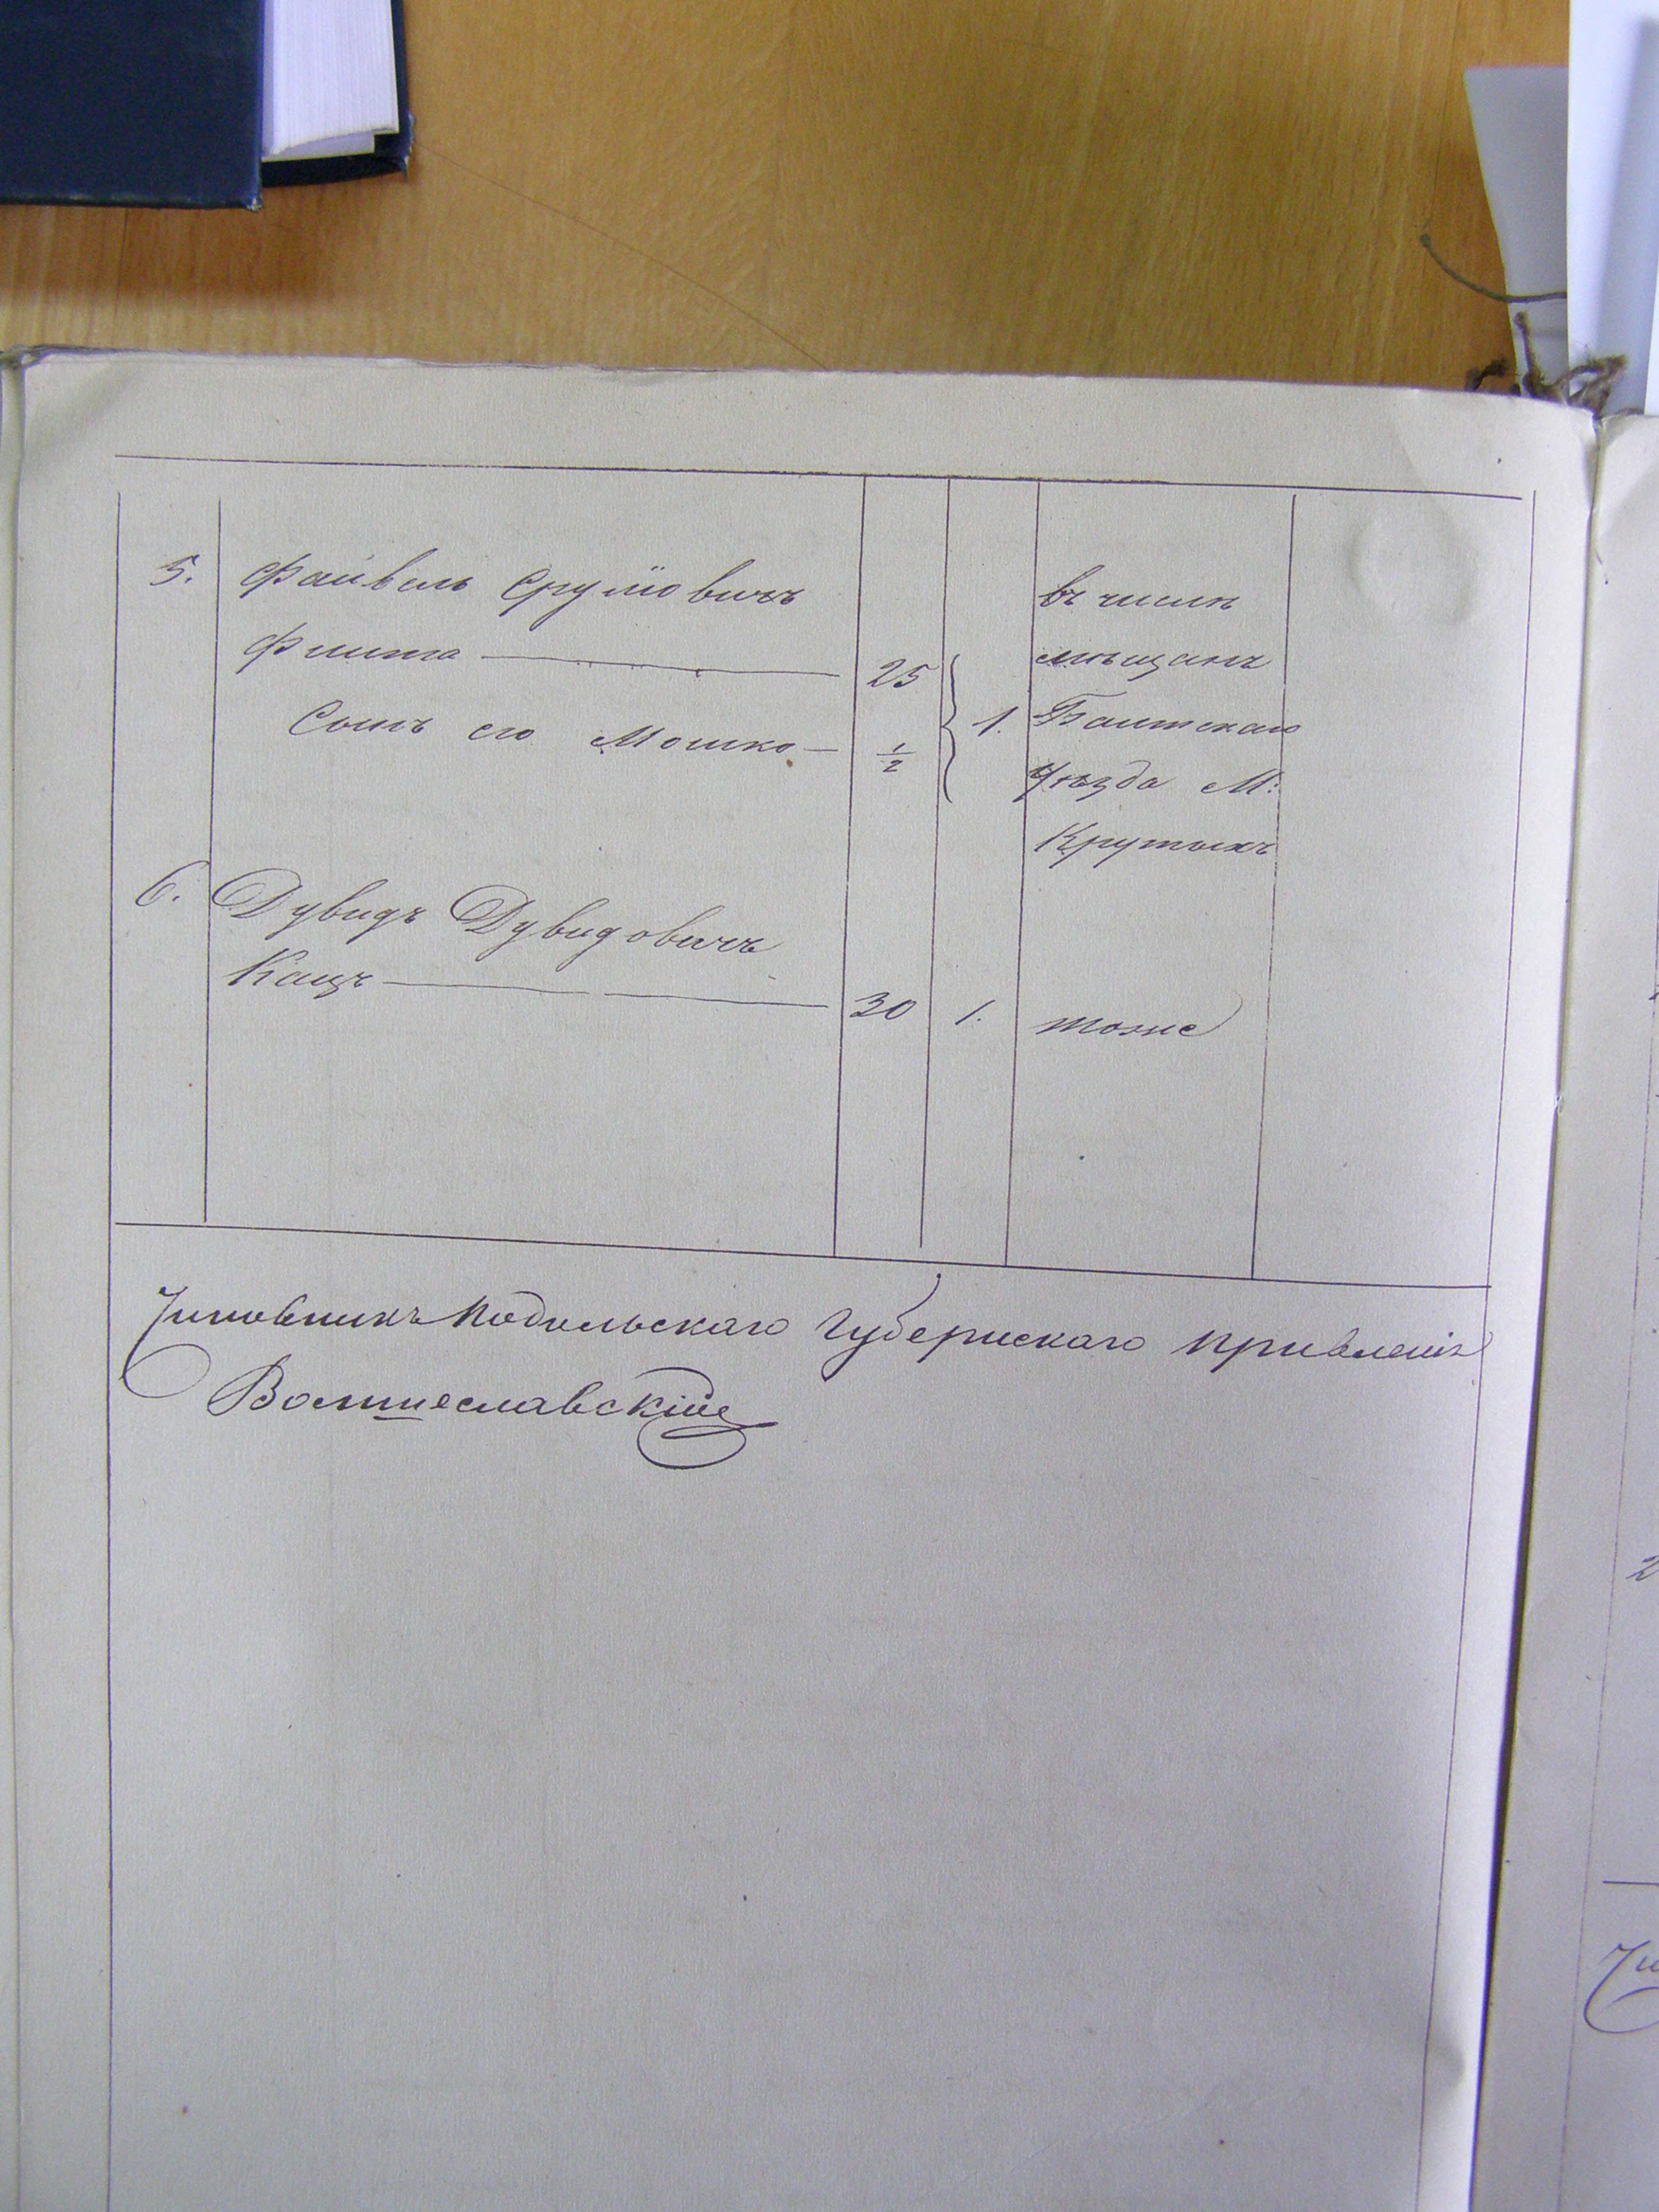 5. Файвель Срулiовичъ въ числѣ
Флита 25 мѣщанъ
Сынъ его Мошко 1/2 1. Балтскаго
Уѣзда М:
Крутыхъ
6. Дувидъ Дувидовичъ
Кацъ 30 1. тоже
Чиновникъ Подольскаго Губернскаго Правленія
2
Чи